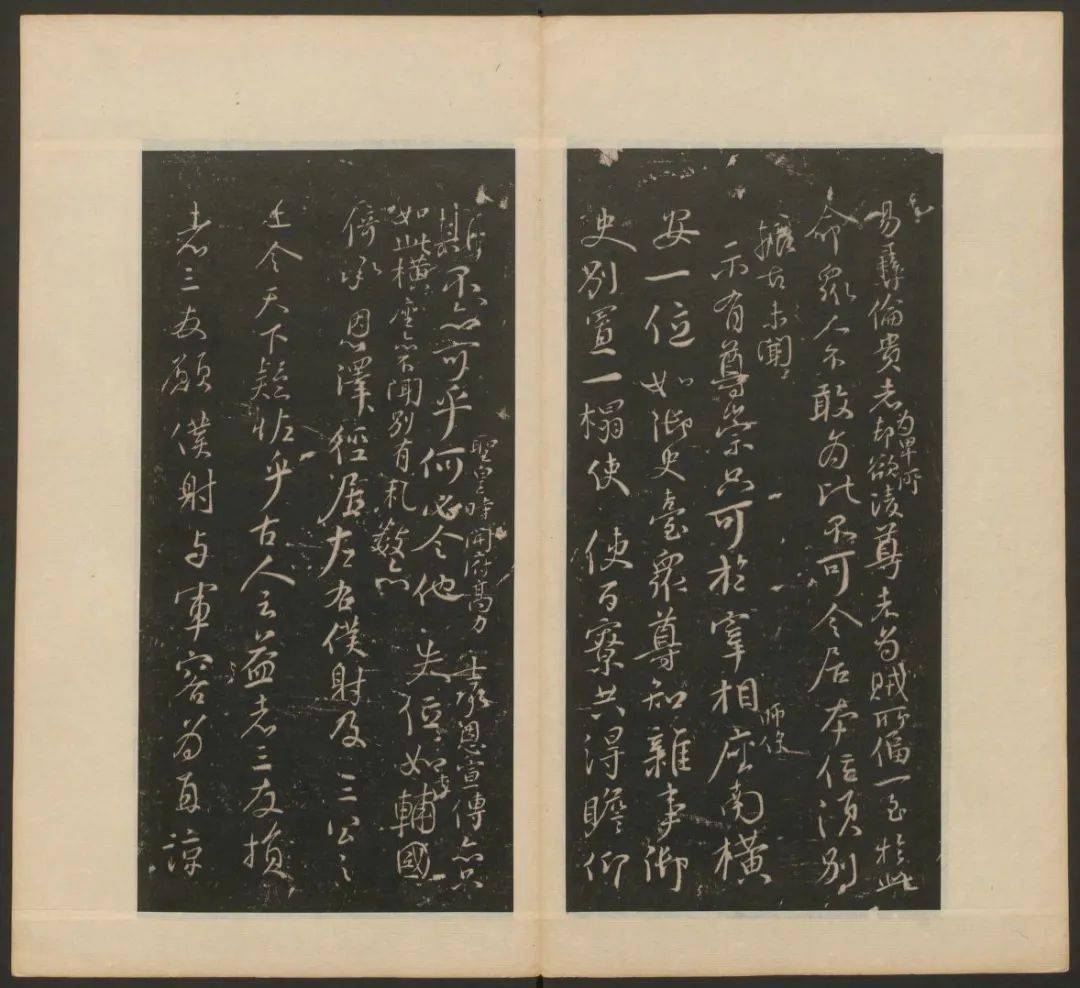 易彝倫貴者却欲陵尊者為賊所偪一至於此
為卑所
振古未聞
命眾人不敢為比不可令居本位須別
示有尊崇只可於宰相座南橫
師保
安一位如御史臺眾尊知雜事御
史別置一榻使使百寮共得瞻仰
聖皇時開府高力士承恩宣傳亦只
不亦可乎何必令他失位如李輔國
如此橫座亦不聞別有礼數亦
倚承恩澤徑居左右僕射及三公之
上令天下疑怪乎古人云益者三友損
者三友願僕射与軍容為直諒